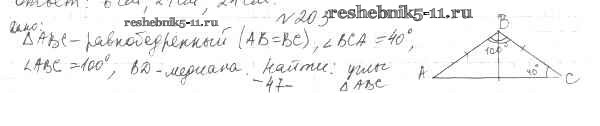 Ответ: 6 см, 21 см, 21 см.
reshebnik5-11.ru
№ 203
reshebnik5-11.ru
Дано:
△ABC - равнобедренный (AB=BC), ∠BCA = 40°,
∠ABC = 100°, BD - медиана. Найти: углы
-47-
△ABC
B
100°
A
40°
C